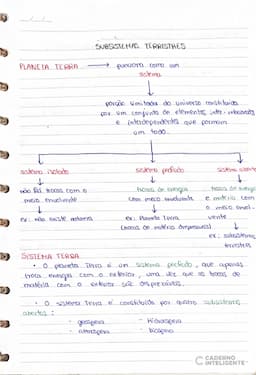 SUBSISTEMAS TERRESTRES
PLANETA TERRA → funciona como um
sistema
porção limitada do universo constituída
por um conjunto de elementos inter-relacionados
e interdependentes que formam
um todo.
sistema isolado sistema fechado sistema aberto
não há trocas com o trocas de energia trocas de energia
meio envolvente com meio envolvente e matéria com
o meio envol-
ex.: não existe natureza ex.: Planeta Terra vente
(trocas de matéria desprezáveis)
ex.: subsistemas
terrestres
SISTEMA TERRA
• O planeta Terra é um sistema fechado, que apenas
troca energia com o exterior, uma vez que as trocas de
matéria com o exterior são desprezáveis.
• O sistema Terra é constituído por quatro subsistemas
abertos:
- geosfera - hidrosfera
- atmosfera - biosfera
CADERNO
INTELIGENTE